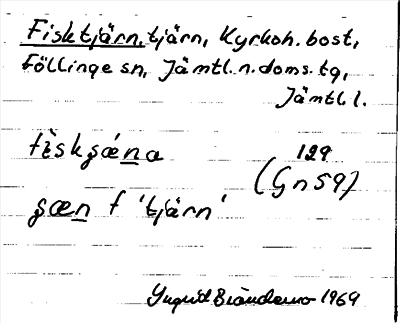 Fisktjärn, tjärn, Kyrkoh. bost,
Föllinge sn, Jämtl. n. doms. tg,
Jämtl. l.
fìskʂǽna 129
(Gn 59)
ʂæn f 'tjärn'
1969